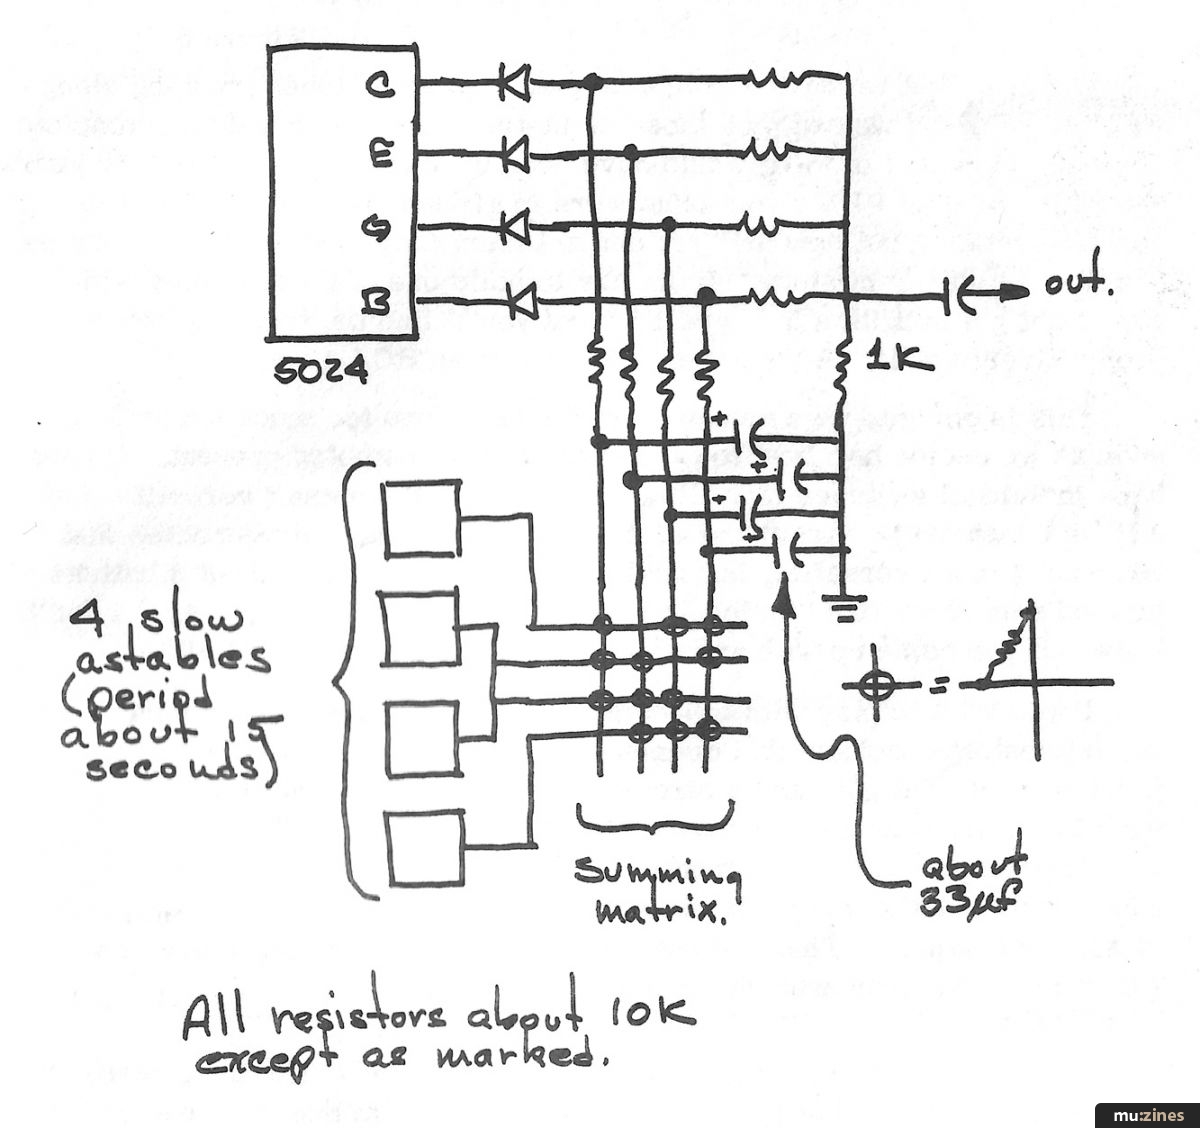 C
E
G
B
5024
out.
1K
+
+
+
+
4 slow
astables
(period
about 15
seconds)
=
summing
matrix.
about
33µf
All resistors about 10K
except as marked.
mu:zines